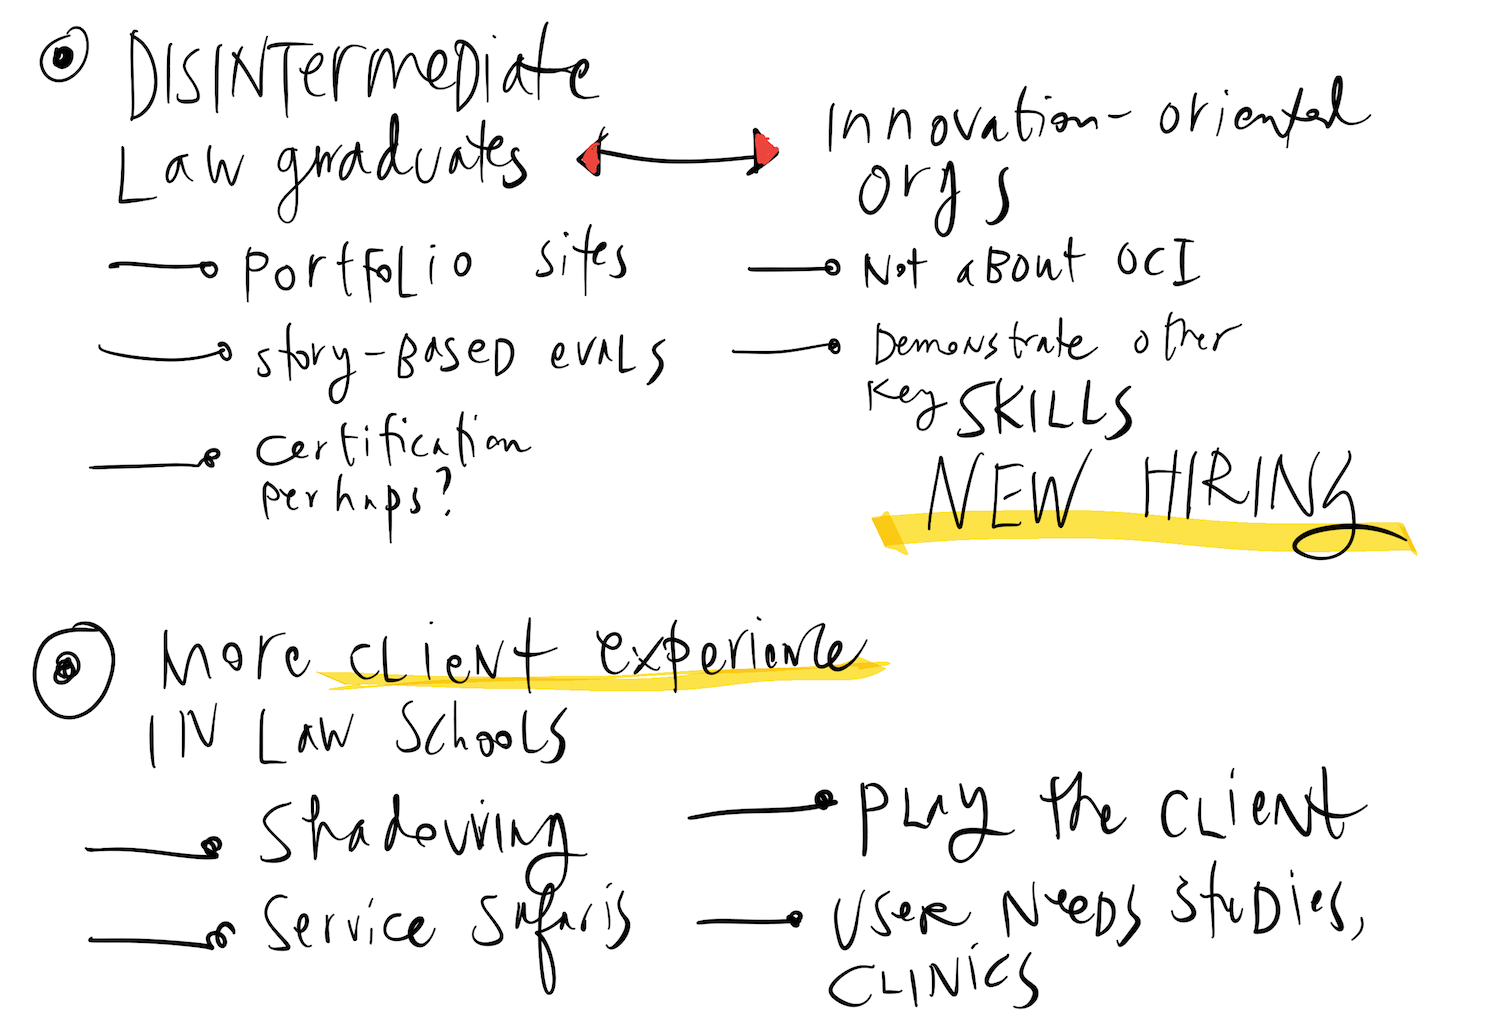 DISINTermeDiate
Law graduates
Innovation-oriented
orgs
Portfolio sites
Story-BASED evals
Certification
perhaps?
Not about OCI
Demonstrate other
key SKILLS
NEW HIRING
More client experience
IN Law Schools
Shadowing
Service Safaris
Play the client
User Needs Studies,
Clinics